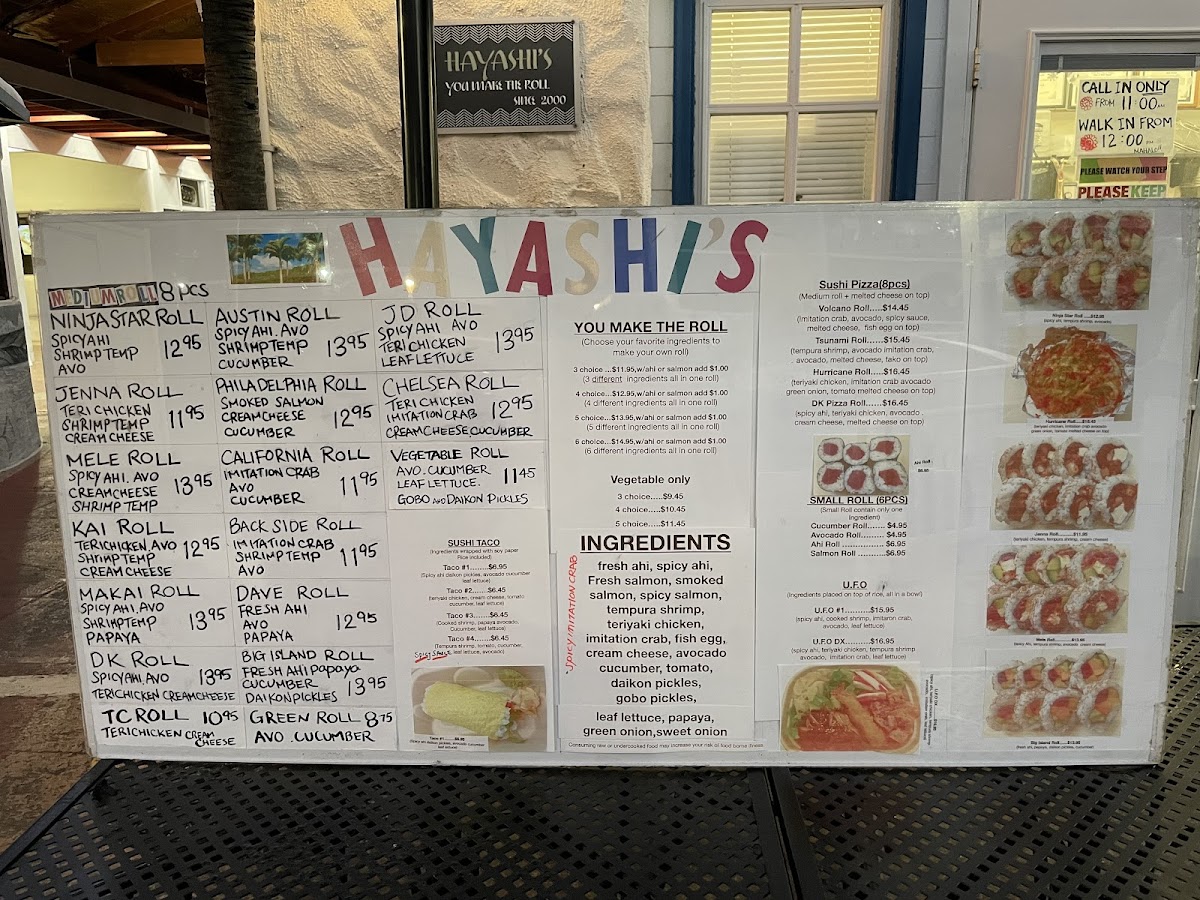 HAYASHI'S
YOU MAKE THE ROLL
SINCE 2000
CALL IN ONLY
FROM 11:00
WALK IN FROM
12:00
MAHALO!!
PLEASE WATCH YOUR STEP
PLEASE KEEP
HAYASHI'S
MEDIUM ROLL 8 PCS
NINJA STAR ROLL
SPICY AHI
SHRIMP TEMP
AVO
12 95
JENNA ROLL
TERI CHICKEN
SHRIMP TEMP
CREAM CHEESE
11 95
MELE ROLL
SPICY AHI. AVO
CREAM CHEESE
SHRIMP TEMP
13 95
KAI ROLL
TERI CHICKEN, AVO
SHRIMP TEMP
CREAM CHEESE
12 95
MAKAI ROLL
SPICY AHI, AVO
SHRIMP TEMP
PAPAYA
13 95
DK ROLL
SPICY AHI, AVO
TERI CHICKEN CREAM CHEESE
13 95
TC ROLL 10 95
TERI CHICKEN CREAM
CHEESE
AUSTIN ROLL
SPICY AHI. AVO
SHRIMP TEMP
CUCUMBER
13 95
PHILADELPHIA ROLL
SMOKED SALMON
CREAM CHEESE
CUCUMBER
12 95
CALIFORNIA ROLL
IMITATION CRAB
AVO
CUCUMBER
11 95
BACK SIDE ROLL
IMITATION CRAB
SHRIMP TEMP
AVO
11 95
DAVE ROLL
FRESH AHI
AVO
PAPAYA
12 95
BIG ISLAND ROLL
FRESH AHI PAPAYA
CUCUMBER
DAIKON PICKLES
13 95
GREEN ROLL 8 75
AVO . CUCUMBER
JD ROLL
SPICY AHI AVO
TERI CHICKEN
LEAF LETTUCE
13 95
CHELSEA ROLL
TERI CHICKEN
IMITATION CRAB
CREAM CHEESE, CUCUMBER
12 95
VEGETABLE ROLL
AVO. CUCUMBER
LEAF LETTUCE.
GOBO AND DAIKON PICKLES
11 45
SUSHI TACO
(Ingredients wrapped with soy paper
Rice included)
Taco #1........$6.95
(Spicy ahi daikon pickles, avocado cucumber
leaf lettuce)
Taco #2.......$6.45
(teriyaki chicken, cream cheese, tomato
cucumber, leaf lettuce)
Taco #3.......$6.45
(Cooked shrimp, papaya avocado,
Cucumber, leaf lettuce)
Taco #4.......$6.45
(Tempura shrimp, tomato, cucumber,
SPICY SAUCE, leaf lettuce, avocado)
YOU MAKE THE ROLL
(Choose your favorite ingredients to
make your own roll)
3 choice ...$11.95,w/ahi or salmon add $1.00
(3 different ingredients all in one roll)
4 choice...$12.95,w/ahi or salmon add $1.00
(4 different ingredients all in one roll)
5 choice...$13.95,w/ahi or salmon add $1.00
(5 different ingredients all in one roll)
6 choice...$14.95,w/ahi or salmon add $1.00
(6 different ingredients all in one roll)
Vegetable only
3 choice.....$9.45
4 choice.....$10.45
5 choice.....$11.45
INGREDIENTS
fresh ahi, spicy ahi,
Fresh salmon, smoked
salmon, spicy salmon,
tempura shrimp,
teriyaki chicken,
imitation crab, fish egg,
cream cheese, avocado
cucumber, tomato,
daikon pickles,
gobo pickles,
leaf lettuce, papaya,
green onion,sweet onion
*SPICY IMITATION CRAB
Consuming raw or undercooked food may increase your risk of food borne illness
Sushi Pizza(8pcs)
(Medium roll + melted cheese on top)
Volcano Roll.....$14.45
(Imitation crab, avocado, spicy sauce,
melted cheese, fish egg on top)
Tsunami Roll......$15.45
(tempura shrimp, avocado imitation crab,
avocado, melted cheese, tako on top)
Hurricane Roll......$16.45
(teriyaki chicken, imitation crab avocado
green onion, tomato melted cheese on top)
DK Pizza Roll......$16.45
(spicy ahi, teriyaki chicken, avocado
cream cheese, melted cheese on top)
Ahi Roll
$6.95
SMALL ROLL (6PCS)
(Small Roll contain only one
Ingredient)
Cucumber Roll....... $4.95
Avocado Roll......... $4.95
Ahi Roll ................. $6.95
Salmon Roll .......... $6.95
U.F.O
(Ingredients placed on top of rice, all in a bowl)
U.F.O #1........$15.95
(spicy ahi, cooked shrimp, imitation crab,
avocado, leaf lettuce)
U.F.O DX.......$16.95
(spicy ahi, teriyaki chicken, tempura shrimp
avocado, imitation crab, leaf lettuce)
Ninja Star Roll .....$12.95
(spicy ahi, tempura shrimp, avocado)
Hurricane Roll.....$16.45
(teriyaki chicken, imitation crab avocado
green onion, tomato melted cheese on top)
Jenna Roll.....$11.95
(teriyaki chicken, tempura shrimp, cream cheese)
Mele Roll.....$13.95
Big Island Roll.....$13.95
(fresh ahi, papaya, daikon pickles, cucumber)